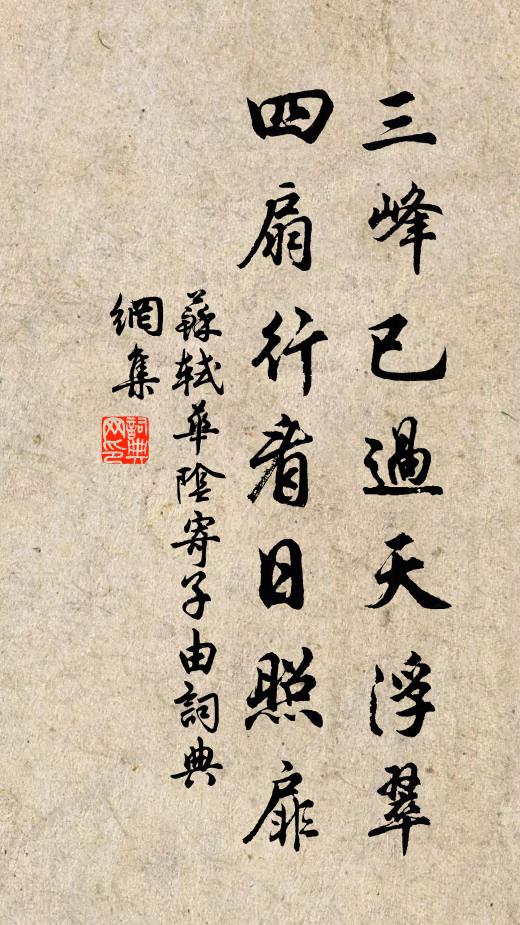 三峰已過天浮翠
四扇行看日照扉
蘇軾華陰寄子由詞典
網集
詞典
网印